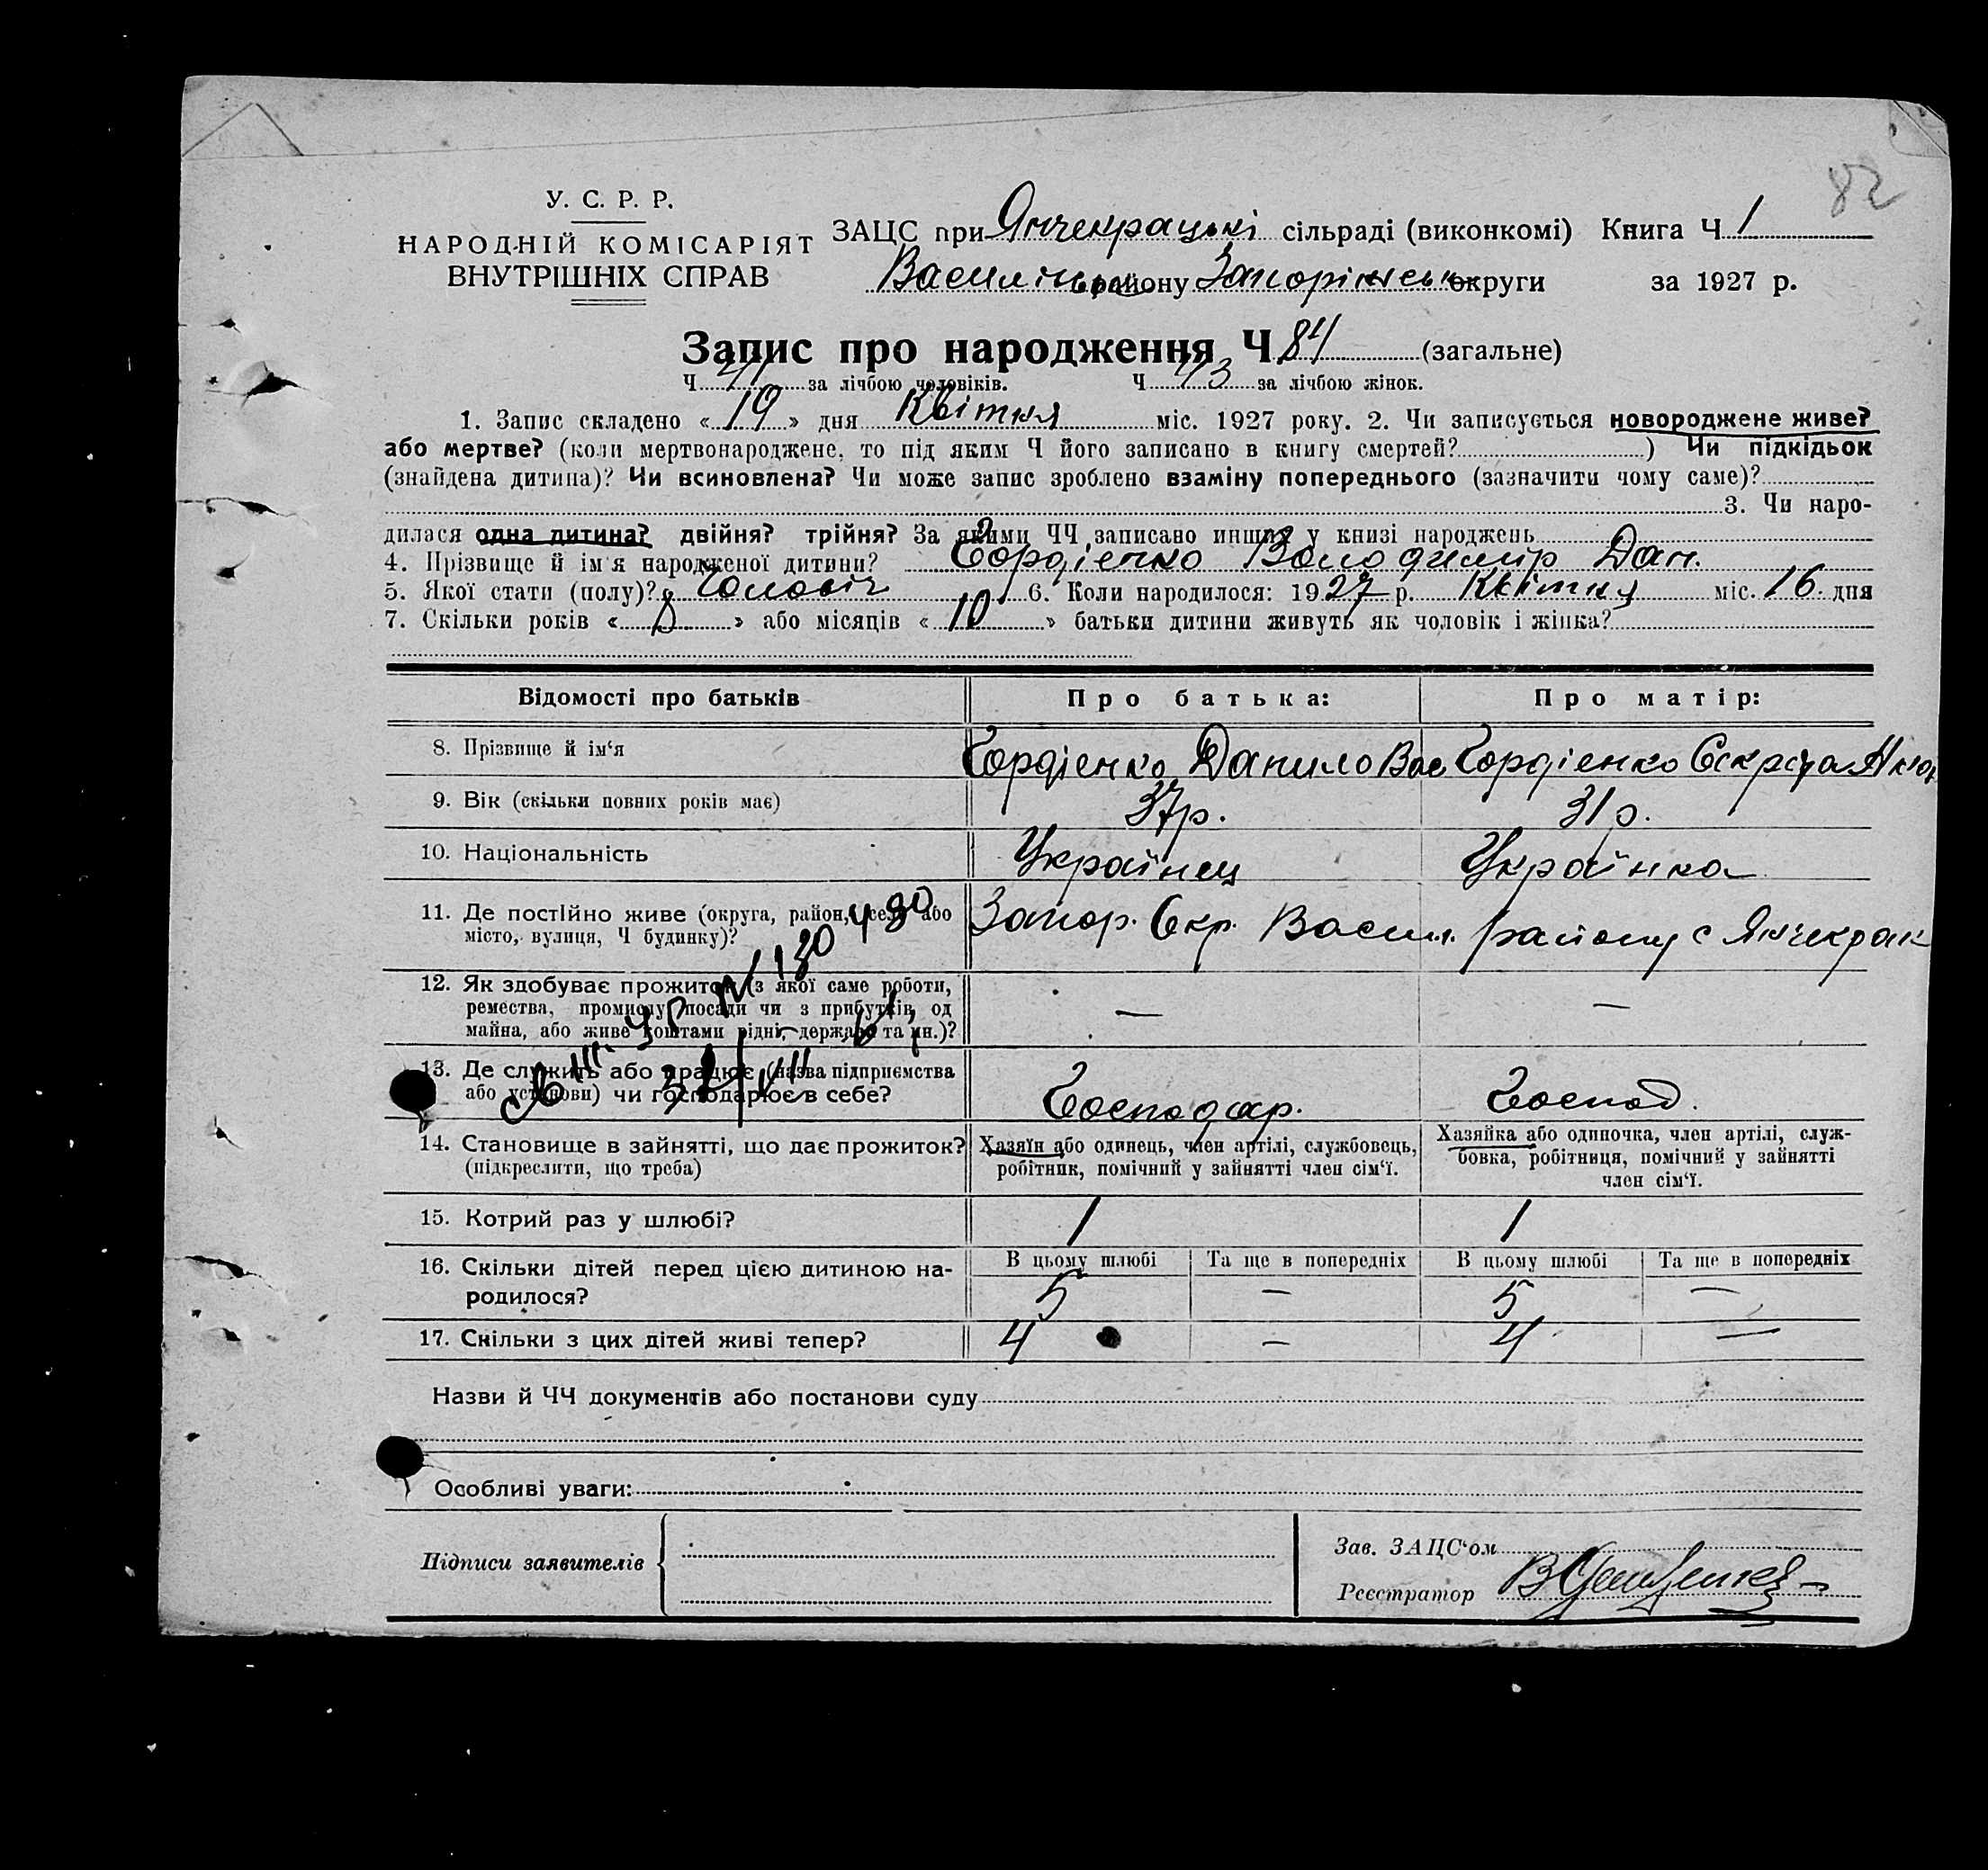 82
У. С. Р. Р.
НАРОДНІЙ КОМІСАРІЯТ
ВНУТРІШНІХ СПРАВ
ЗАЦС при Янчекрацькі сільраді (виконкомі) Книга Ч 1
Василівськ району Запоріжськ округи за 1927 р.
Запис про народження Ч 84 (загальне)
Ч 41 за лічбою чоловіків. Ч 43 за лічбою жінок.
1. Запис складено «19» дня Квітня міс. 1927 року. 2. Чи записується новороджене живе?
або мертве? (коли мертвонароджене, то під яким Ч його записано в книгу смертей? ) Чи підкідьок
(знайдена дитина)? Чи всиновлена? Чи може запис зроблено взаміну попереднього (зазначити чому саме)?
3. Чи наро-
дилася одна дитина? двійня? трійня? За якими ЧЧ записано инших у книзі народжень
4. Прізвище й ім'я народженої дитини? Гордієнко Володимир Дан.
5. Якої стати (полу)? Чоловіч 6. Коли народилося: 1927 р. Квітня міс. 16 дня
7. Скільки років «8» або місяців «10» батьки дитини живуть як чоловік і жінка?
Відомості про батьків Про батька: Про матір:
8. Прізвище й ім‘я Гордієнко Данило Вас Гордієнко
9. Вік (скільки повних років має) 37р. 31р.
10. Національність Українец Українка
11. Де постійно живе (округа, район, село або
місто, вулиця, Ч будинку)? Запор. Окр. Васил. району с Янчекрак
12. Як здобуває прожиток (з якої саме роботи,
ремества, промислу, посади чи з прибутків од
майна, або живе коштами рідні, держави та ин.)? — —
13. Де служить або працює (назва підприємства
або установи) чи господарює в себе? Господар. Господ.
14. Становище в зайнятті, що дає прожиток?
(підкреслити, що треба)
Хазяїн або одинець, член артілі, службовець,
робітник, помічний у зайнятті член сім‘ї.
Хазяйка або одиночка, член артілі, служ-
бовка, робітниця, помічний у зайнятті
член сім‘ї.
15. Котрий раз у шлюбі? 1 1
В цьому шлюбі Та ще в попередніх В цьому шлюбі Та ще в попередніх
16. Скільки дітей перед цією дитиною на-
родилося? 5 — 5 —
17. Скільки з цих дітей живі тепер? 4 — 4 —
Назви й ЧЧ документів або постанови суду
Особливі уваги:
Підписи заявителів
Зав. ЗАЦС‘ом
Реєстратор